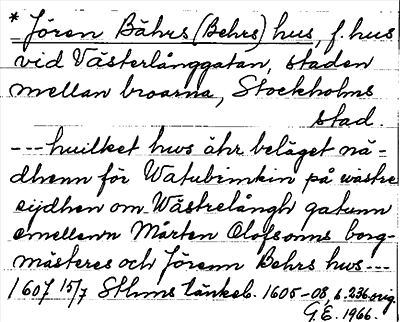 * Jören Bährs (Behrs) hus, f. hus
vid Västerlånggatan, staden
mellan broarna, Stockholms
stad.
--- huilket hws ähr beläget nä=
dhenn för Watubrinkin på wästre
sijdhen om Wästrelångh gatunn
emellann Mårten Olofsonns borg=
mästeres och Jörenn Behrs hws ---
1607 15/7 Sthms tänkeb. 1605-08, s. 236 orig.
G.E. 1966.